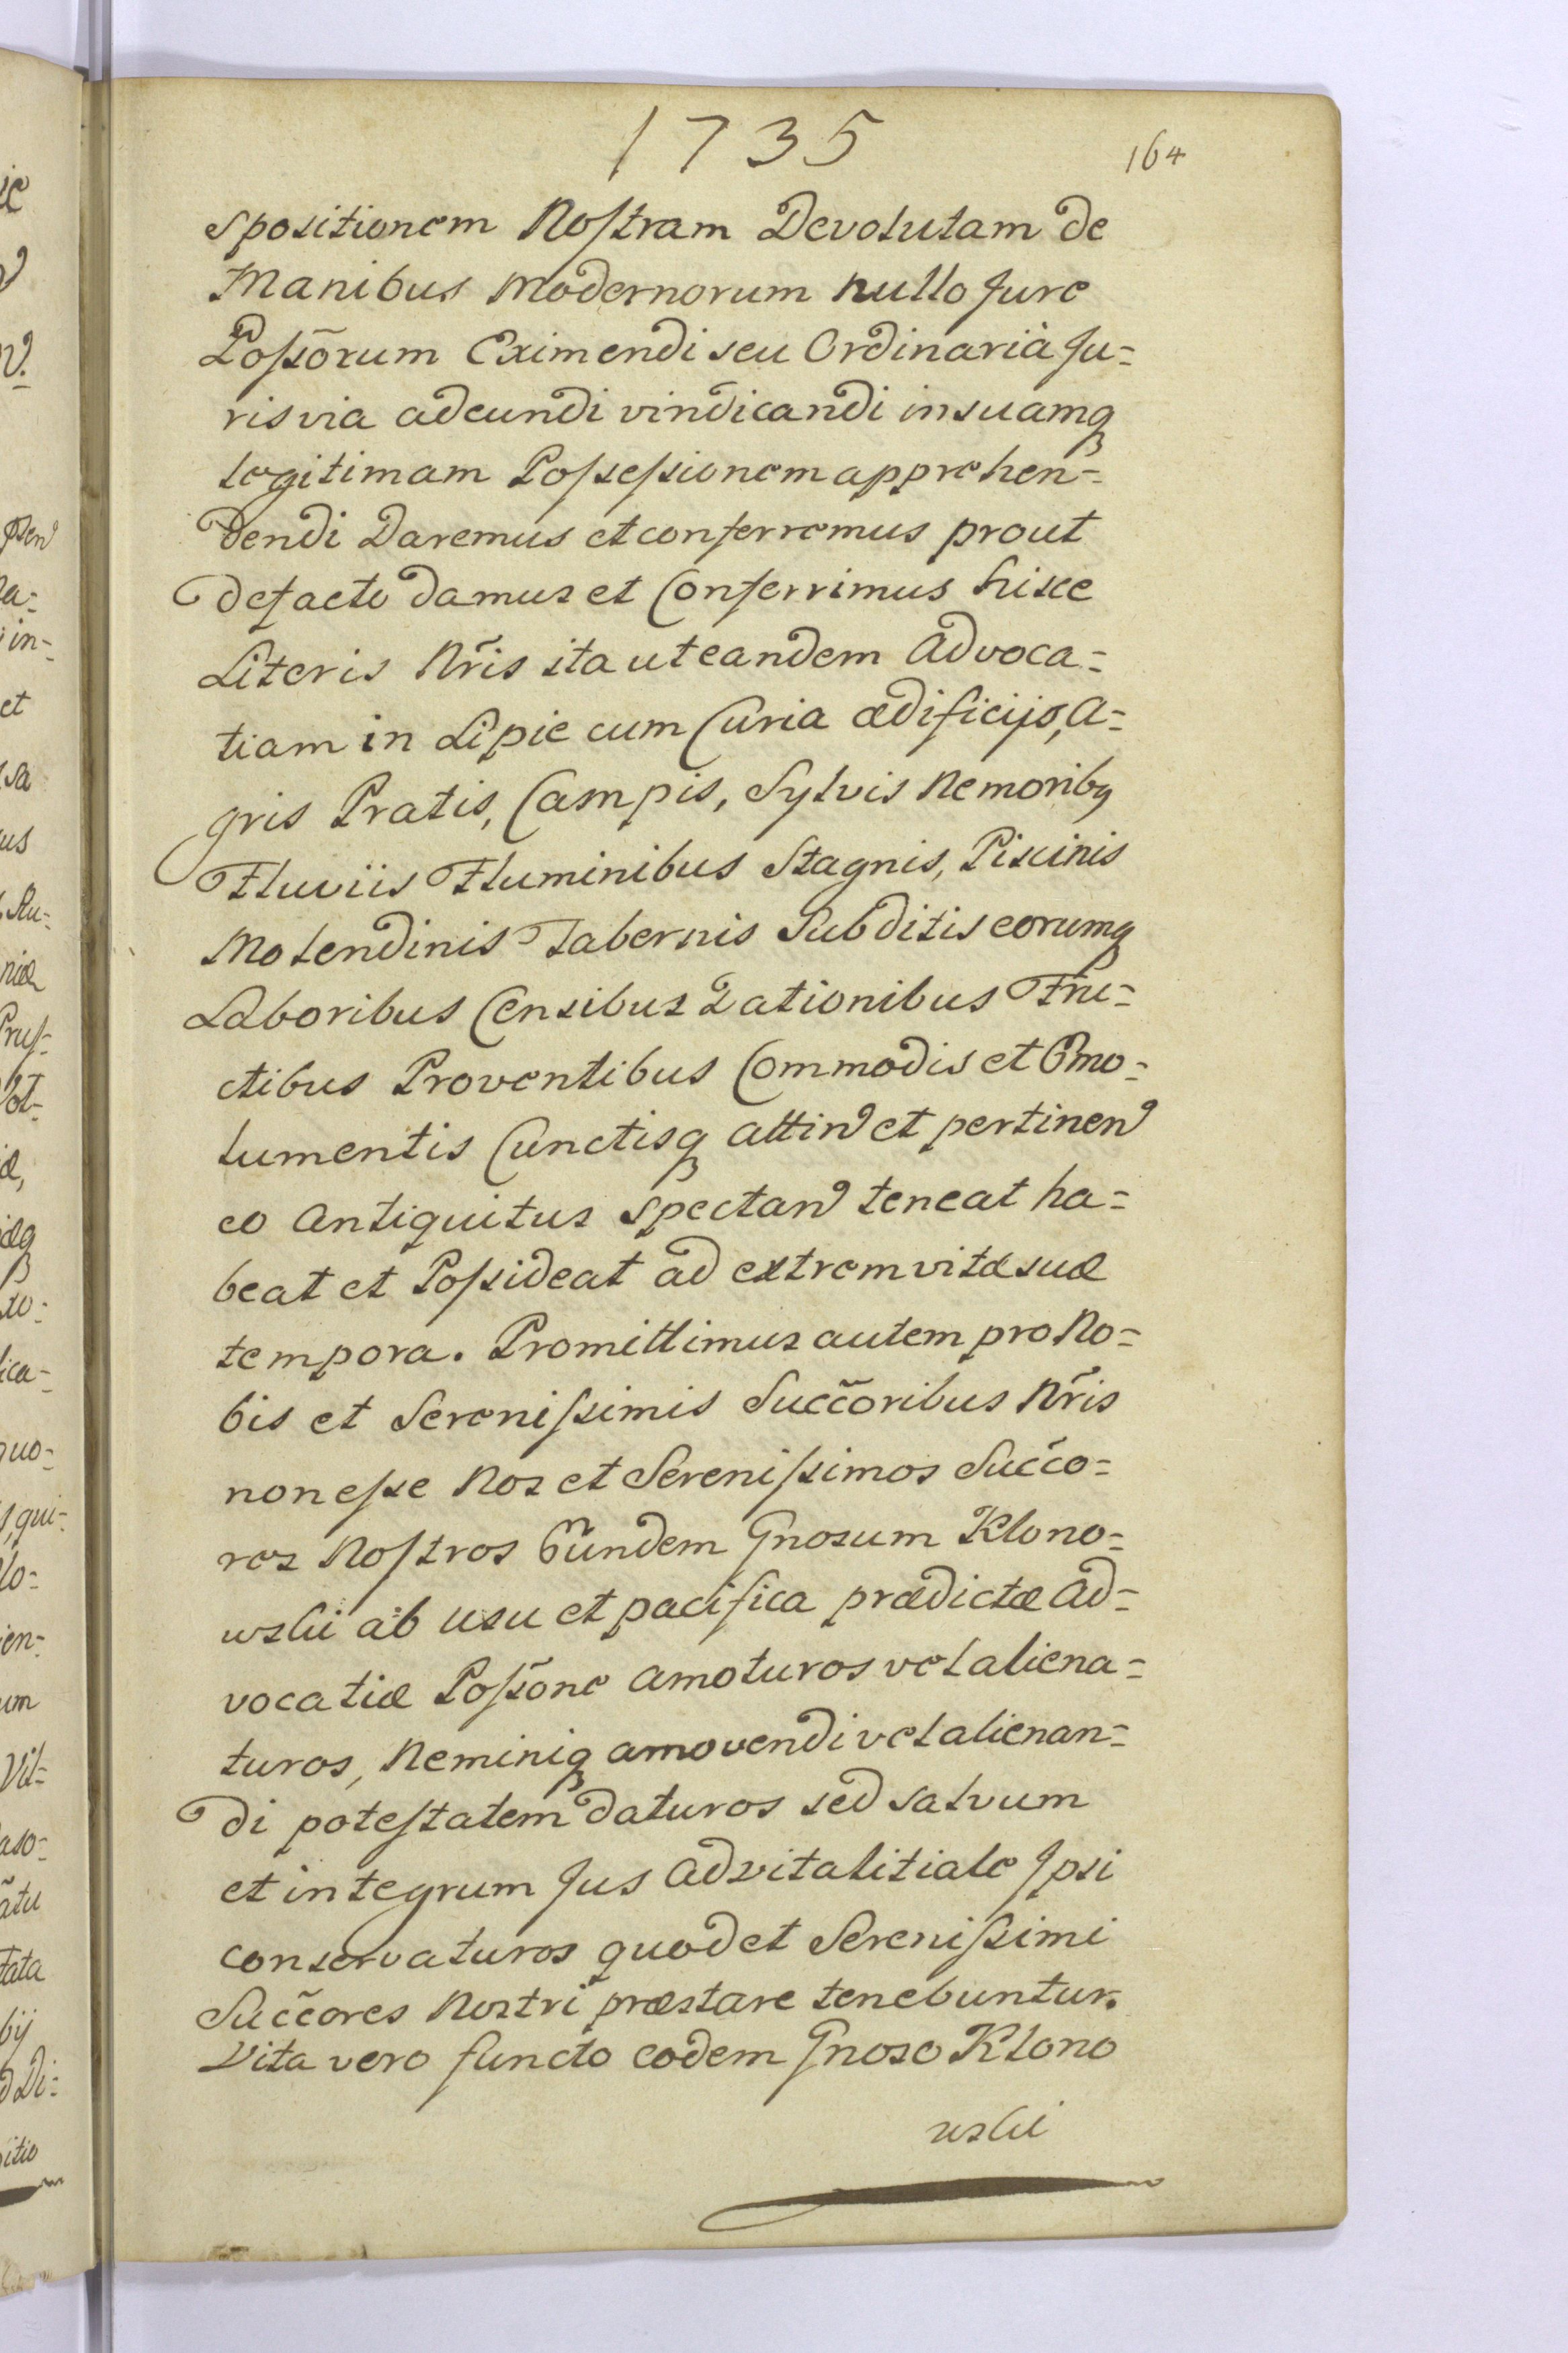 1735
164
spositionem Nostram Devolutam de
Manibus Modernorum nullo Jure
Possõrum Eximendi seu Ordinarià Ju=
ris via adeundi vindicandi in suamq
legitimam Possessionem apprehen=
dendi Daremus et conferremus prout
defacto damus et Conferrimus hisce
Literis Nr̃is ita ut eandem Advoca=
tiam in Lipie cum Curia ædificijs, A=
gris Pratis, Campis, Sylvis Nemoribq
Fluviis Fluminibus Stagnis, Piscinis
Molendinis Tabernis Subditis eorumq
Laboribus Censibus Dationibus Fru=
ctibus Proventibus Commodis et Emo=
lumentis Cunctisq attin et pertinen
eo Antiquitus spectan teneat ha=
beat et Possideat ad extrem vitæ suæ
tempora. Promittimus autem pro No=
bis et Serenissimis Succ̃oribus Nr̃is
non esse Nos et Serenissimos Succ̃o=
res Nostros Eundem Gnosum Klono=
wski ab usu et pacifica prædictæ Ad=
vocatiæ Possõne amoturos vel aliena=
turos, Neminiq amovendi vel alienan=
di potestatem daturos sed salvum
et integrum Jus Advitalitiale Ipsi
conservaturos quod et Serenissimi
Succ̃ores Nostri præstare tenebuntur.
Vita vero functo eodem Gnoso Klono
wski
ic
et
sa
us
Stu=
niæ
Prus=
ica=
quo=
qui=
lo=
ien=
Vit=
aso=
ãtu
tata
bij
Di=
itio